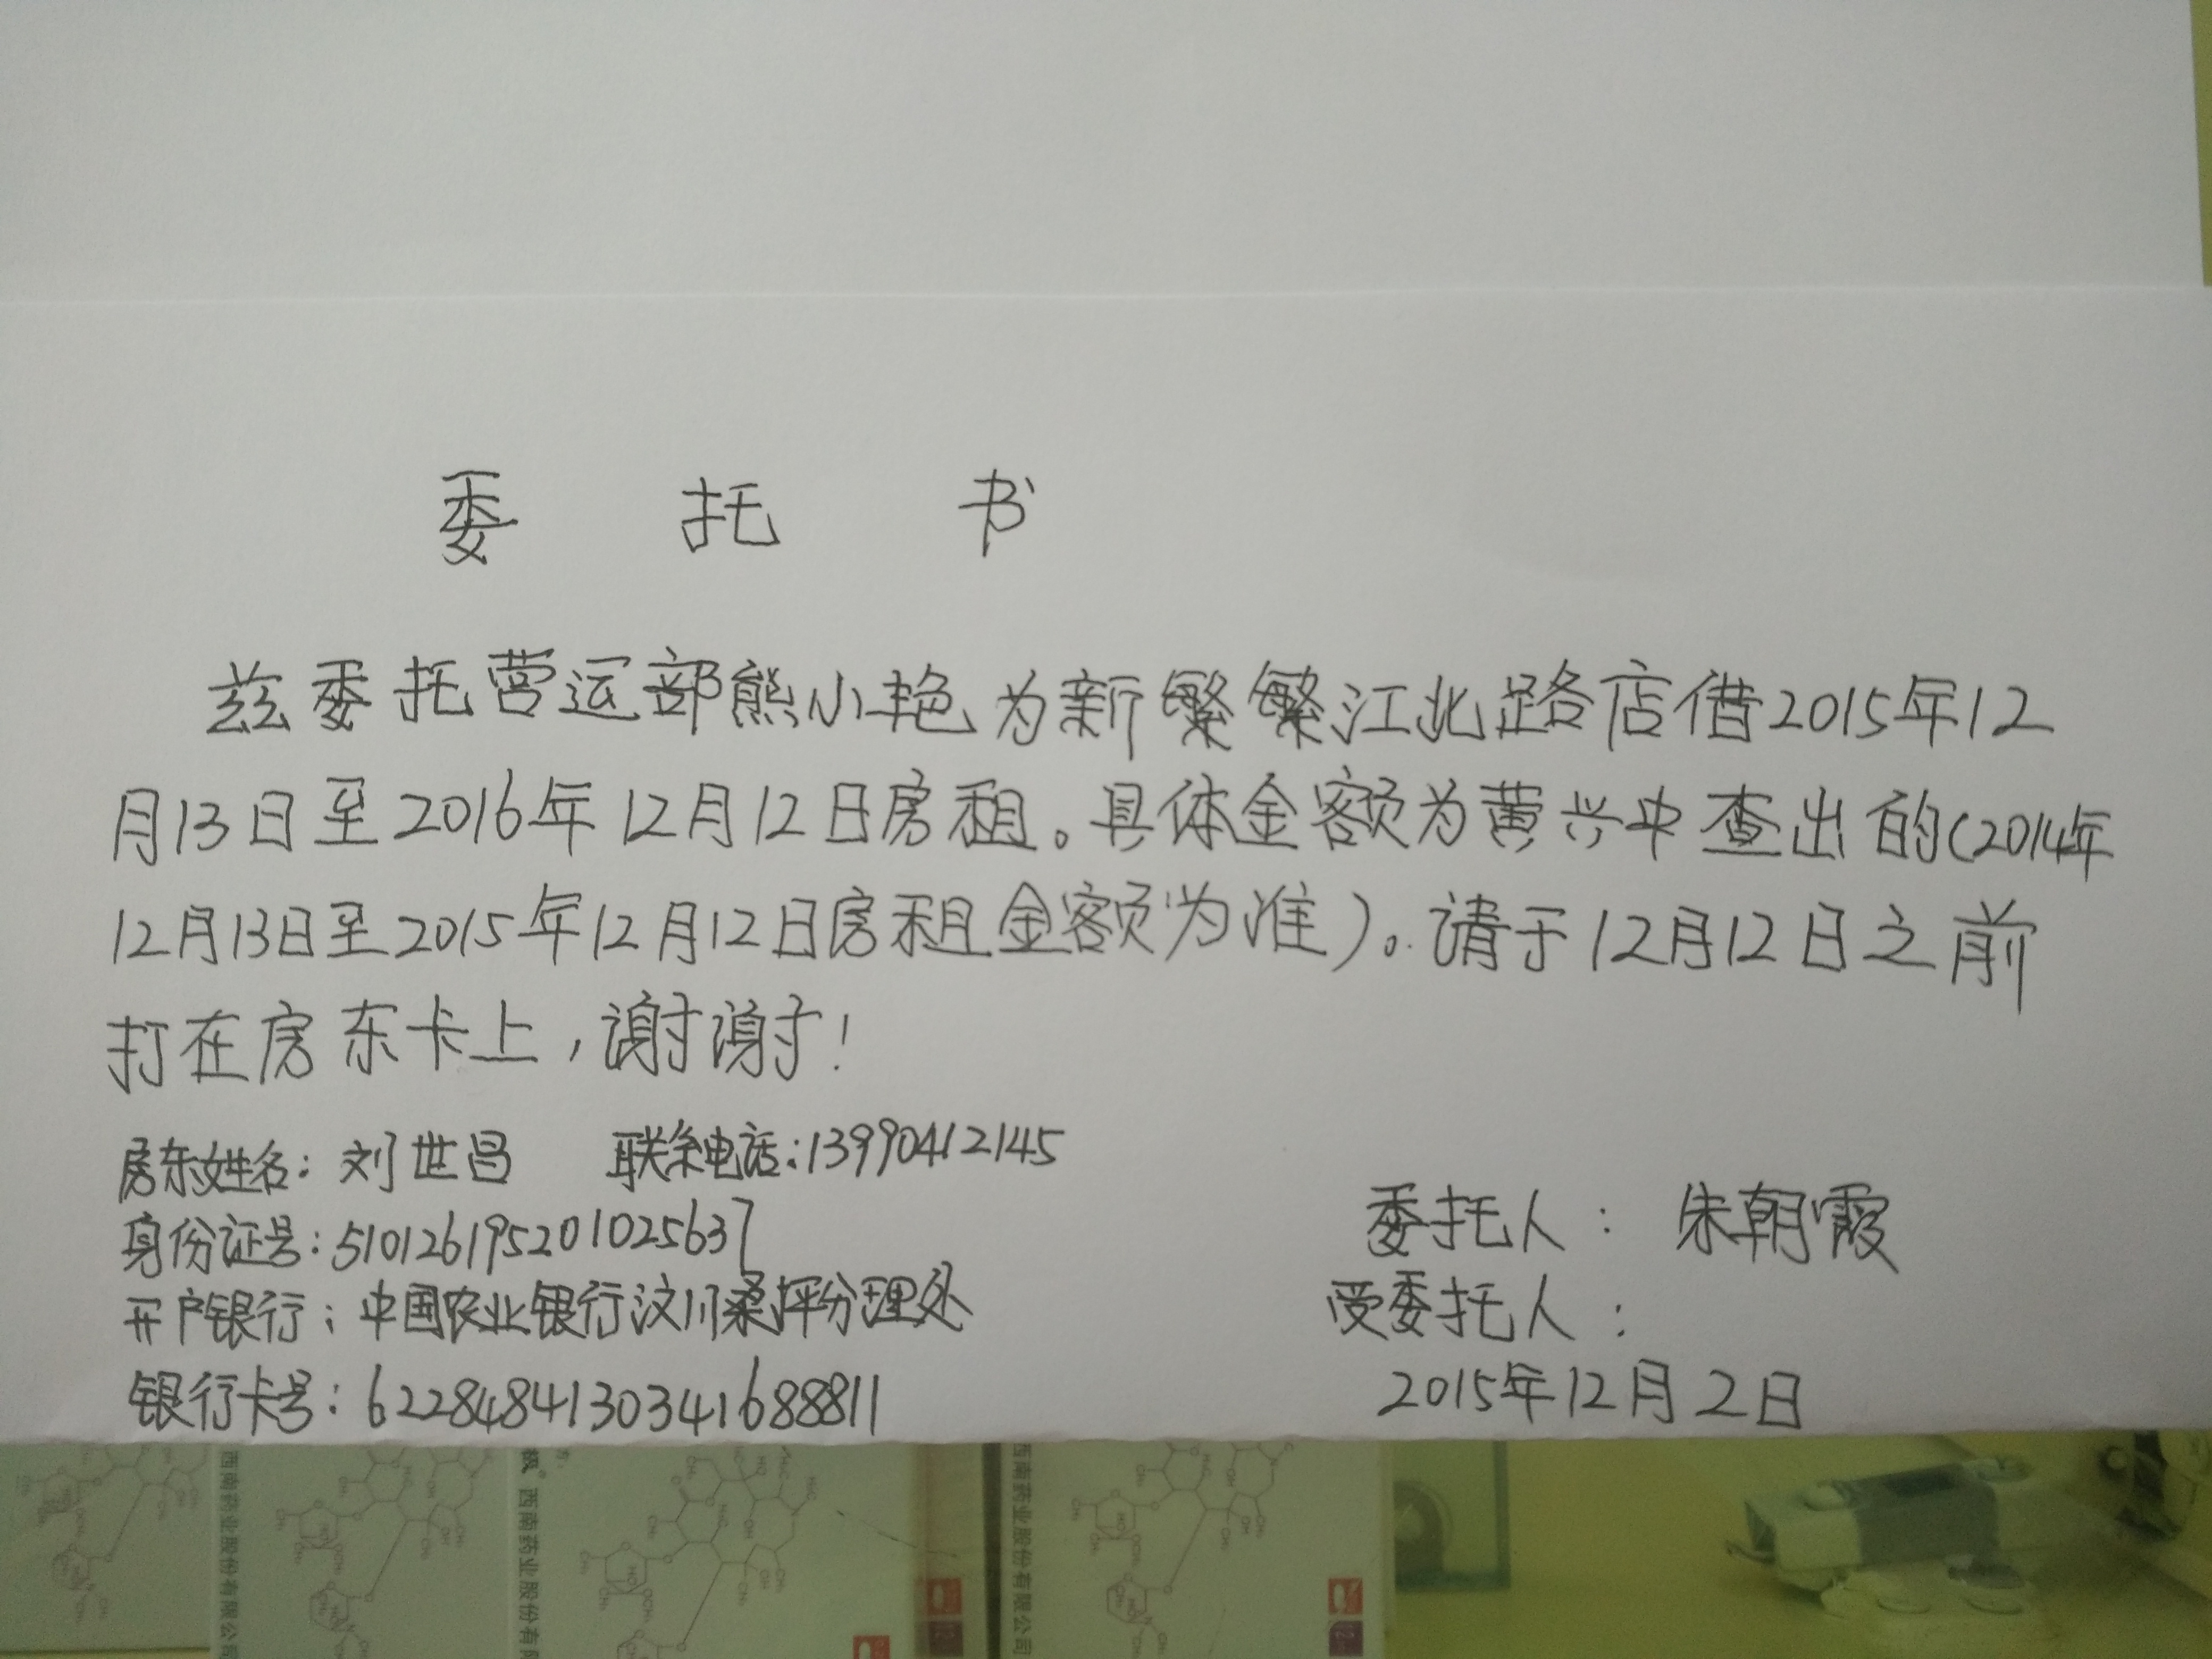 委 托 书
兹委托营运部熊小艳为新繁繁江北路店借2015年12
月13日至2016年12月12日房租。具体金额为黄兴中查出的(2014年
12月13日至2015年12月12日房租金额为准)。请于12月12日之前
打在房东卡上,谢谢!
房东姓名:刘世昌 联系电话:13990412145
身份证号:510126195201025637
开户银行:中国农业银行汶川桑坪分理处
银行卡号:6228484130341688811
委托人:朱朝霞
受委托人:
2015年12月2日
西南药业股份有限公司
西南药业股份有
西南药业股份有限公司